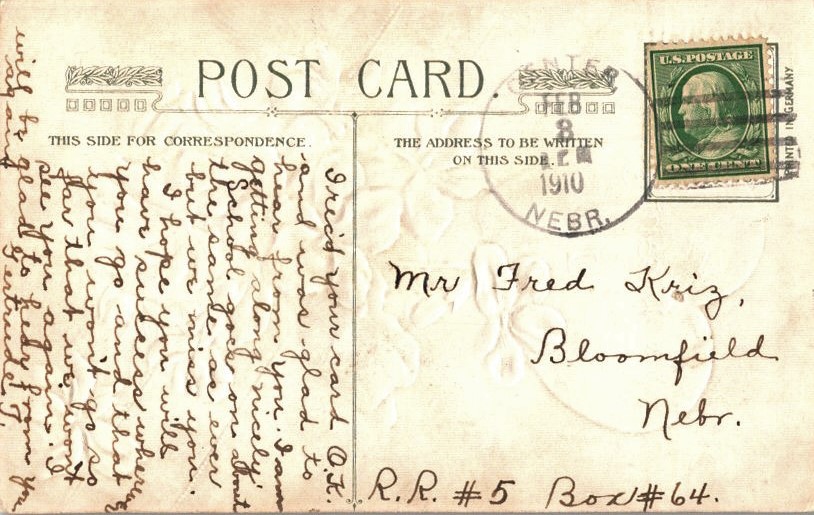 POST CARD.
THIS SIDE FOR CORRESPONDENCE.
THE ADDRESS TO BE WRITTEN
ON THIS SIDE.
U.S. POSTAGE
ONE CENT
PRINTED IN GERMANY
CENTER
FEB
8
1910
NEBR.
I rec'd your card O.K.
and was glad to
hear from you. I am
getting along nicely.
School goes on about
the same as ever
but we miss you.
I hope you will
have success wherever
you go and that
you won't go so
far that we won't
see you again. I
will be glad to hear from you
again
Gertrude J.
Mr Fred Kriz,
Bloomfield
Nebr.
R.R. #5 Box #64.